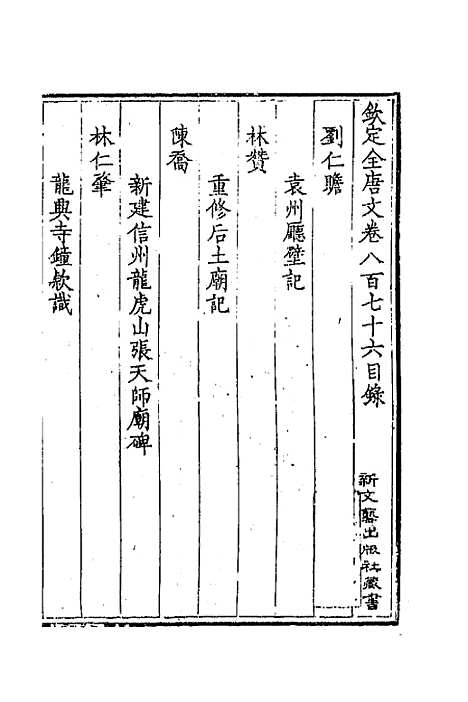 欽定全唐文卷八百七十六目錄
新文藝出版社藏書
劉仁贍
袁州廳壁記
林贊
重修后土廟記
陳喬
新建信州龍虎山張天師廟碑
林仁肇
龍興寺鐘款識